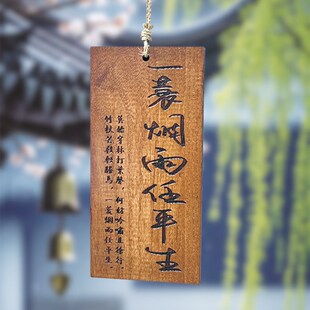 一蓑烟雨任平生
莫聽穿林打葉聲，何妨吟嘯且徐行，
竹杖芒鞋輕勝馬，一蓑烟雨任平生。